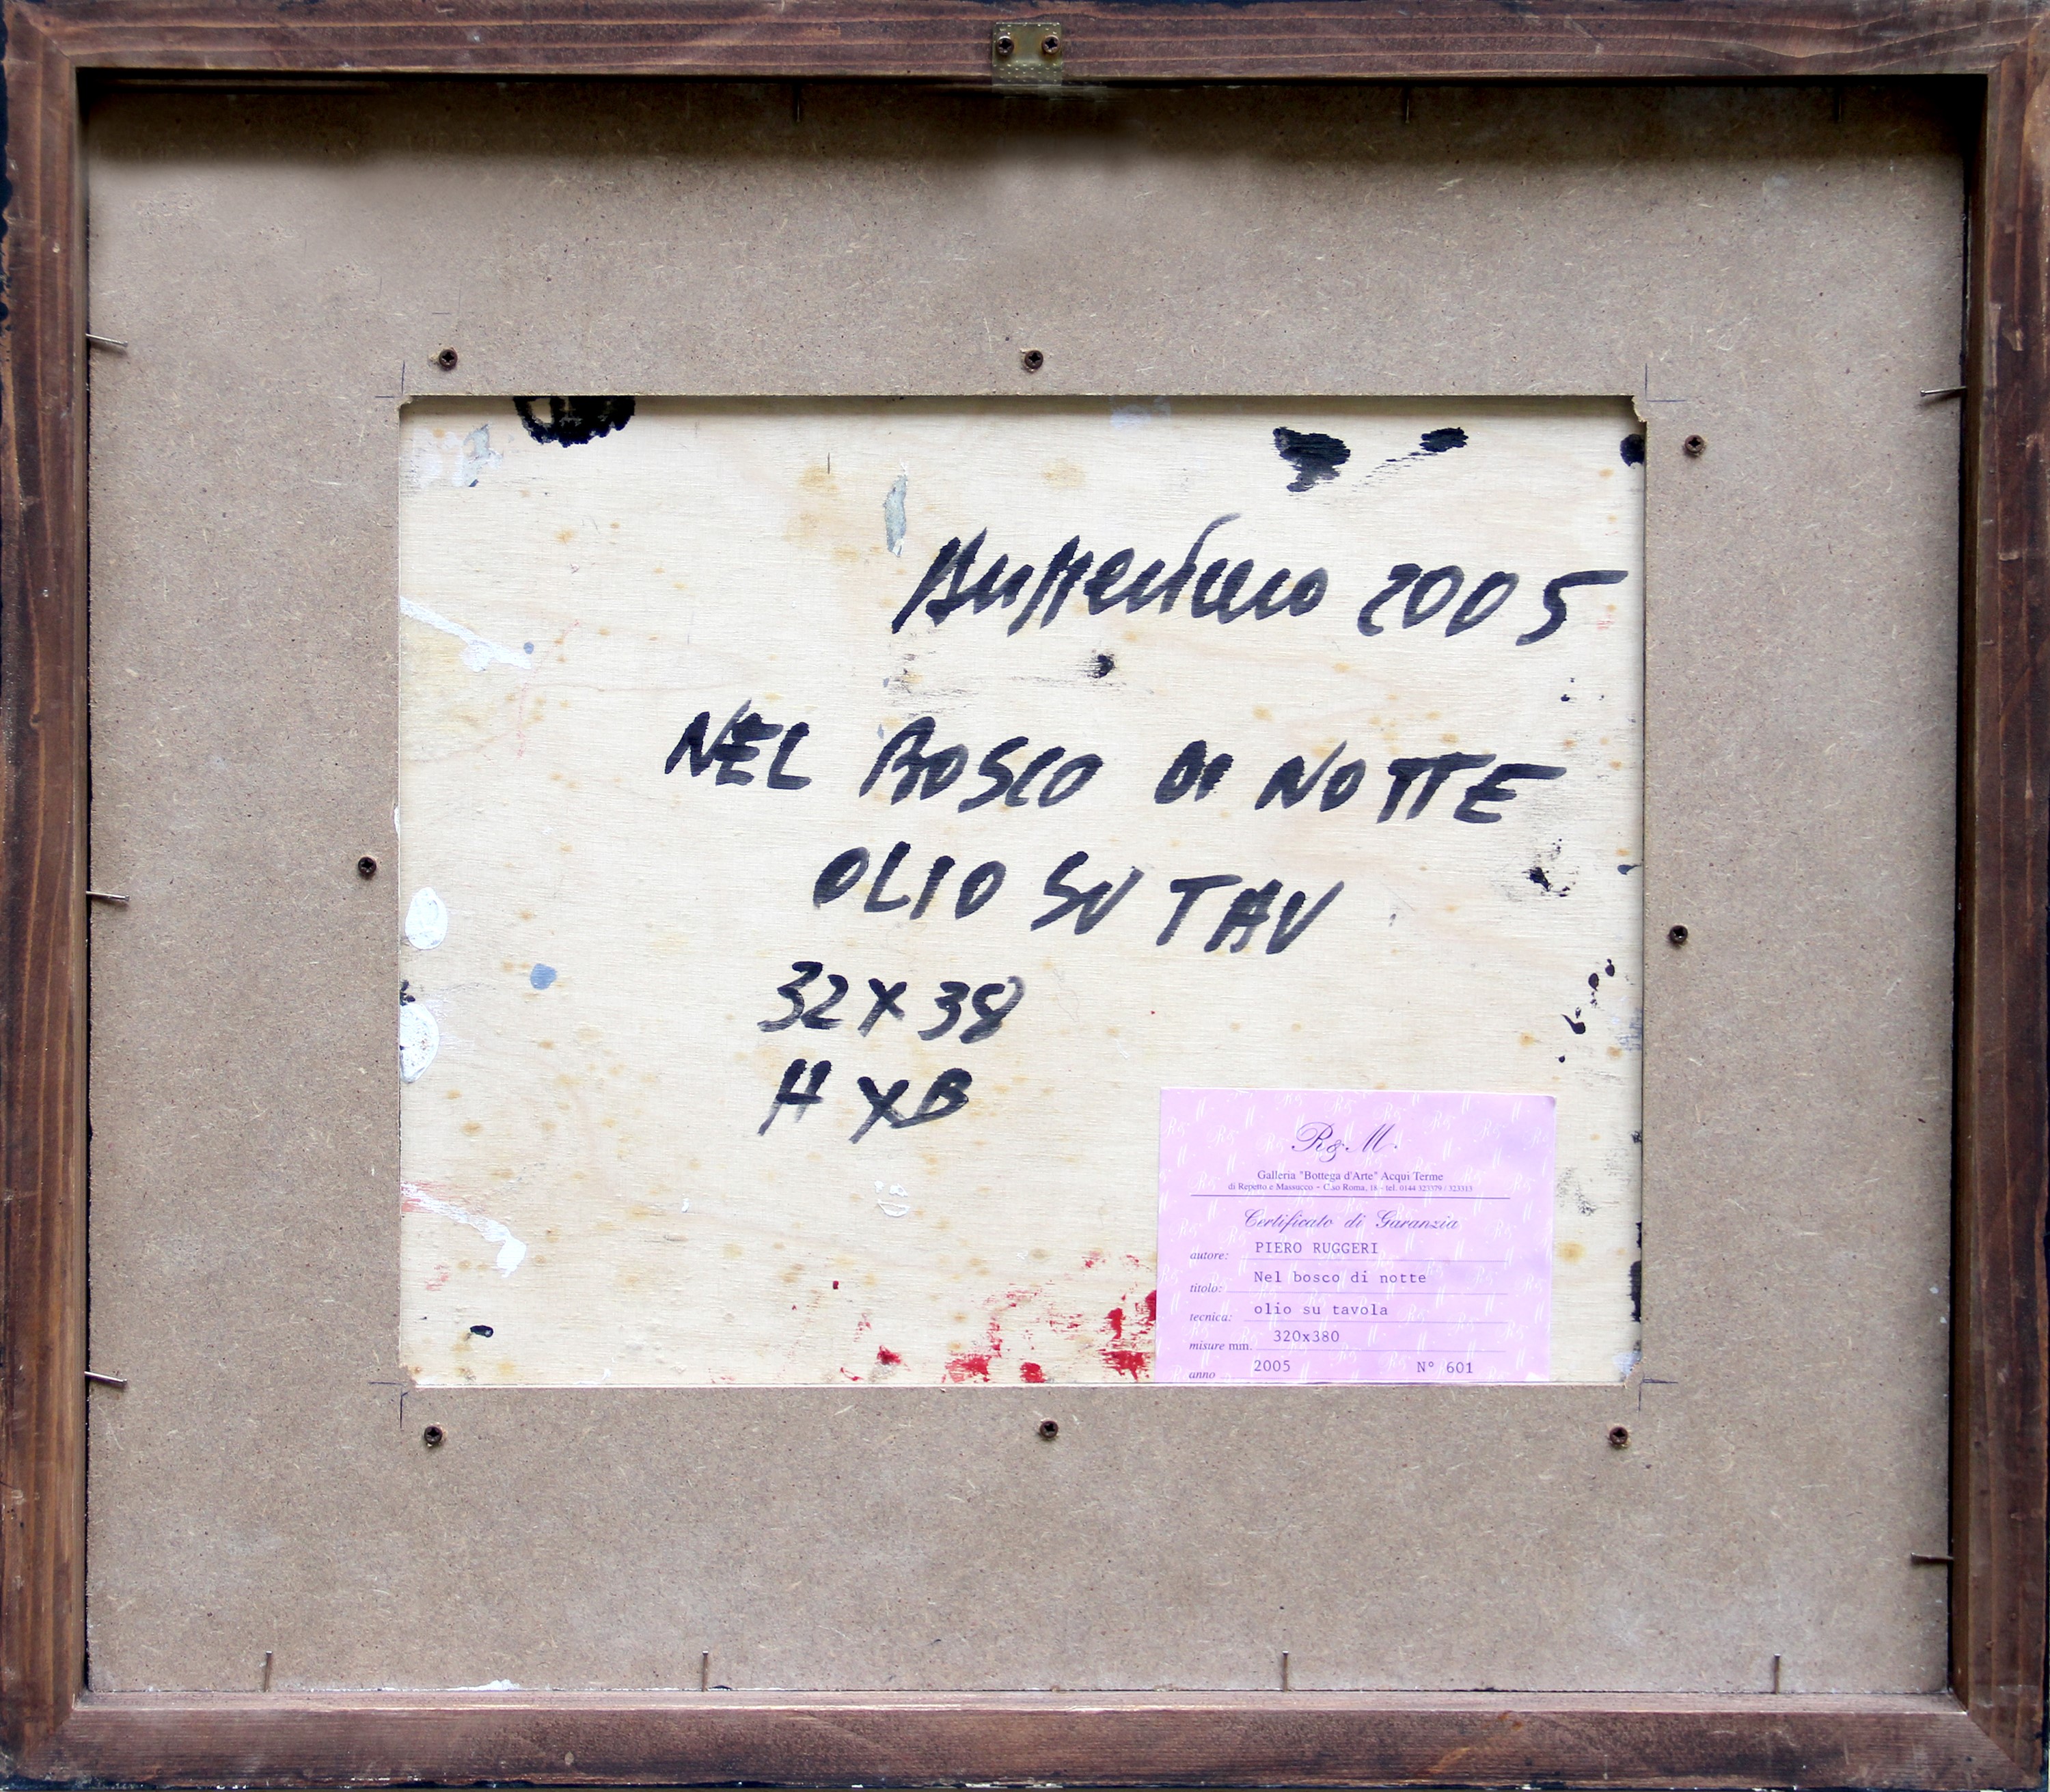 2005
NEL BOSCO DI NOTTE
OLIO SU TAV
32X38
H XB
R&M.
Galleria "Bottega d'Arte" Acqui Terme
di Repetto e Massucco - C.so Roma, 18 - tel. 0144 323379 / 323313
Certificato di Garanzia
autore: PIERO RUGGERI
titolo: Nel bosco di notte
tecnica: olio su tavola
misure mm. 320x380
anno 2005 N° 601